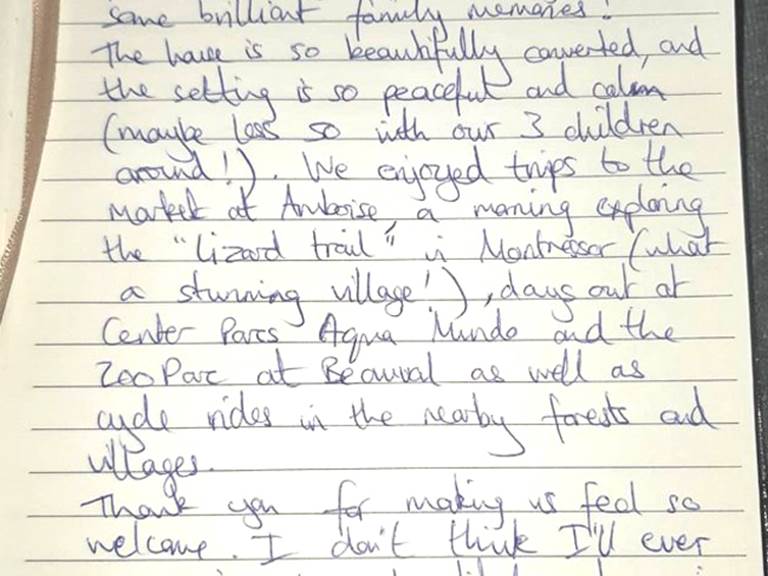 some brilliant family memories!
The house is so beautifully converted, and
the setting is so peaceful and calm
(maybe less so with our 3 children
around!). We enjoyed trips to the
Market at Amboise, a morning exploring
the "lizard trail" in Montresor (what
a stunning village!), days out at
Center Parcs Aqua Mundo and the
Zoo Parc at Beauval as well as
cycle rides in the nearby forests and
villages.
Thank you for making us feel so
welcome. I don't think I'll ever